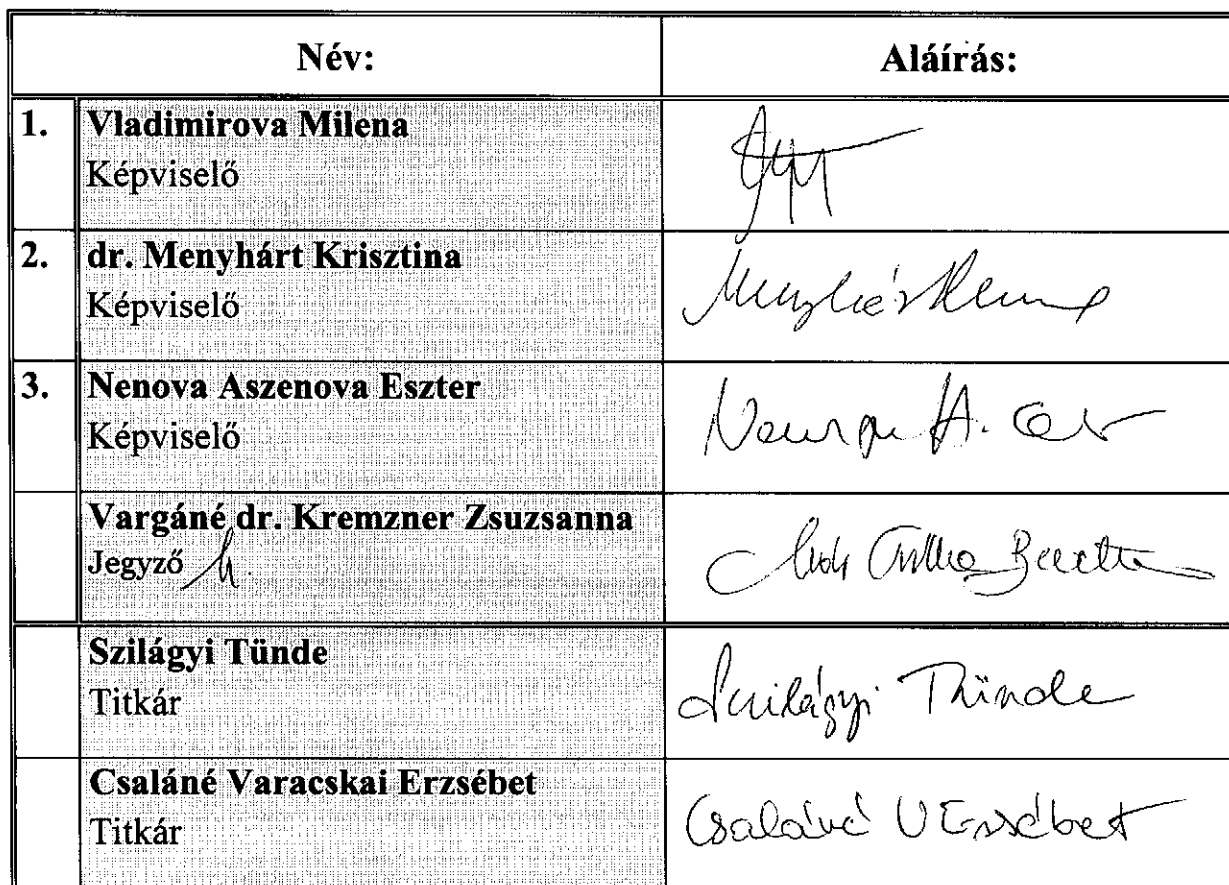 Név: Aláírás:
1. Vladimirova Milena
Képviselő
2. dr. Menyhárt Krisztina
Képviselő
3. Nenova Aszenova Eszter
Képviselő
Vargáné dr. Kremzner Zsuzsanna
Jegyző h.
Szilágyi Tünde
Titkár
Szilágyi Tünde
Csaláné Varacskai Erzsébet
Titkár
Csaláné V Erzsébet